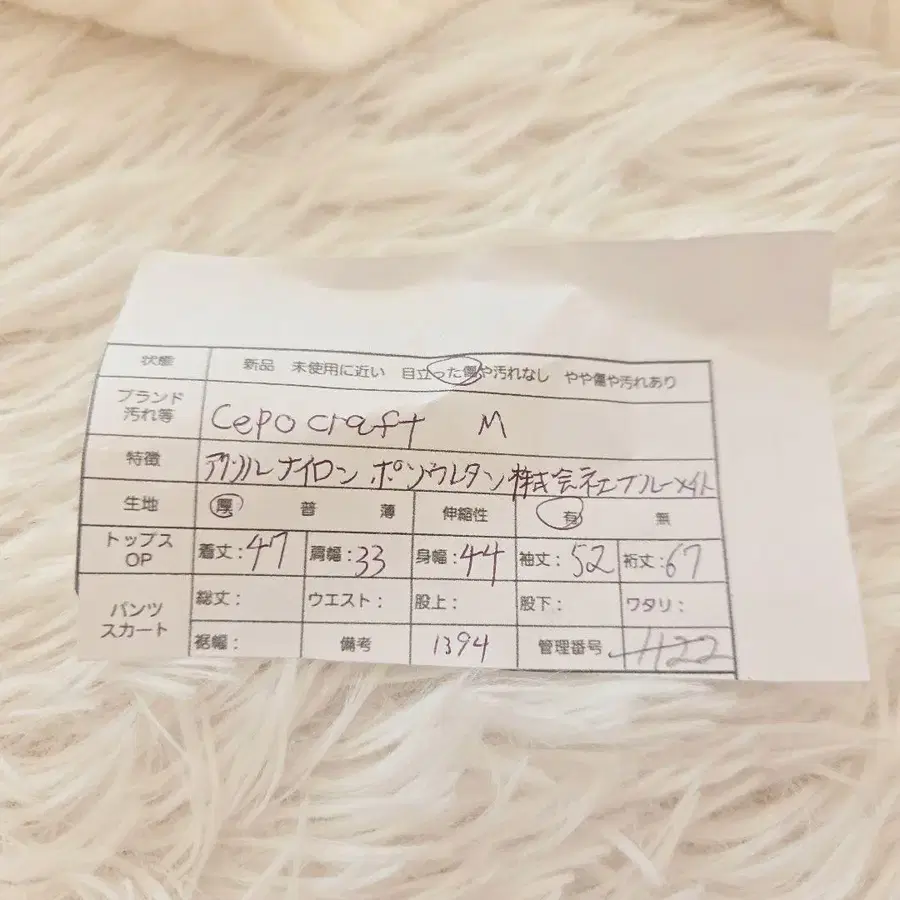 状態 新品 未使用に近い 目立った傷や汚れなし やや傷や汚れあり
ブランド
汚れ等 Cepo craft M
特徴 アクリル ナイロン ポリウレタン 株式会社エブルーメイト
生地 厚 普 薄 伸縮性 有 無
トップス
OP 着丈:47 肩幅:33 身幅:44 袖丈:52 裄丈:67
パンツ
スカート 総丈: ウエスト: 股上: 股下: ワタリ:
裾幅: 備考 1394 管理番号